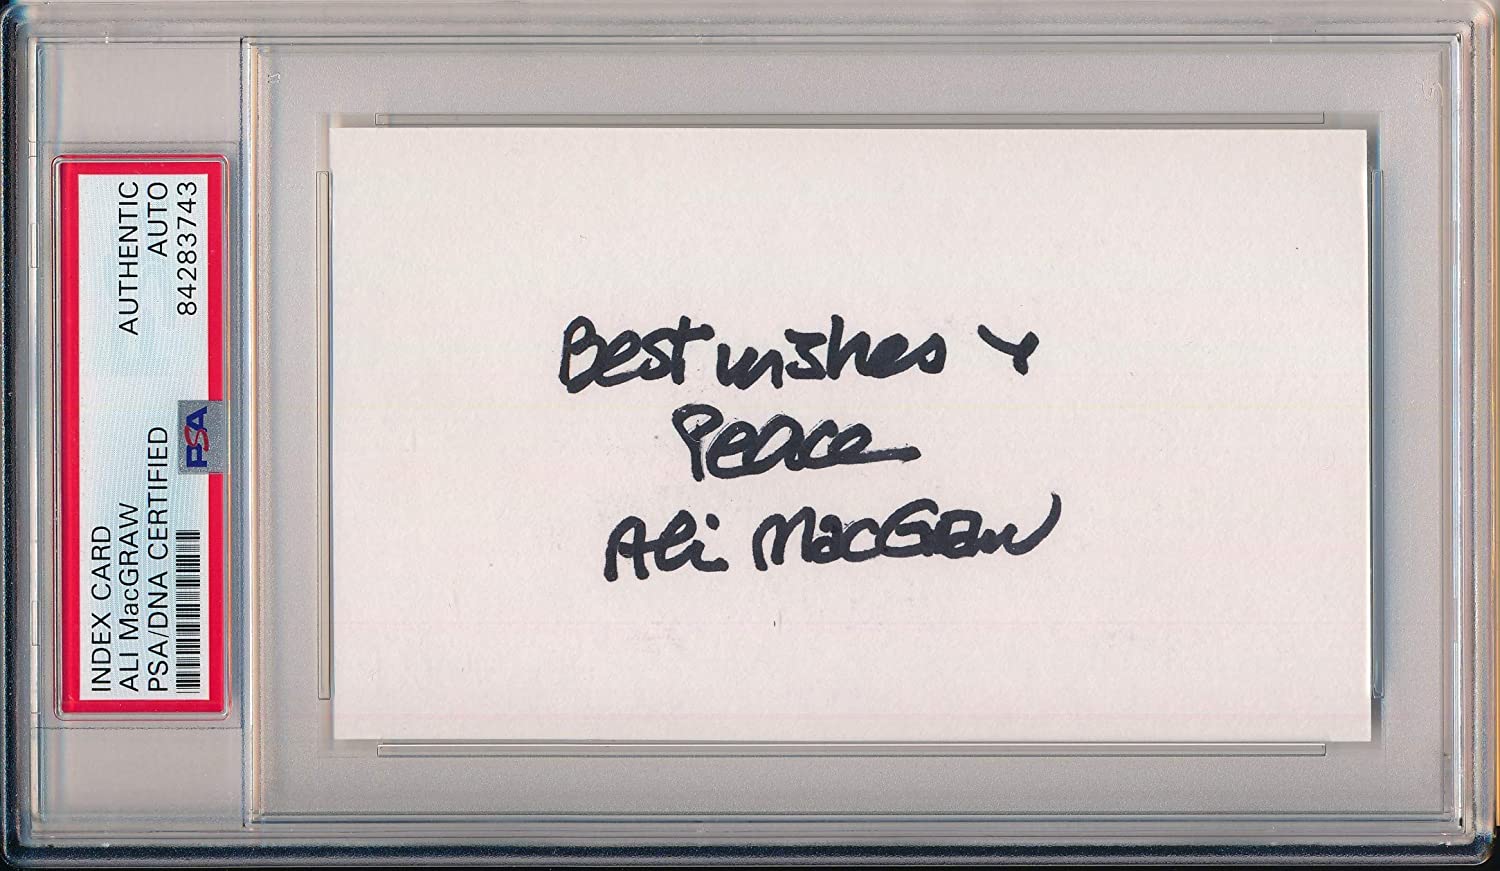 INDEX CARD
ALI MacGRAW
PSA/DNA CERTIFIED
AUTHENTIC
AUTO
84283743
PSA
Best wishes &
Peace
Ali MacGraw